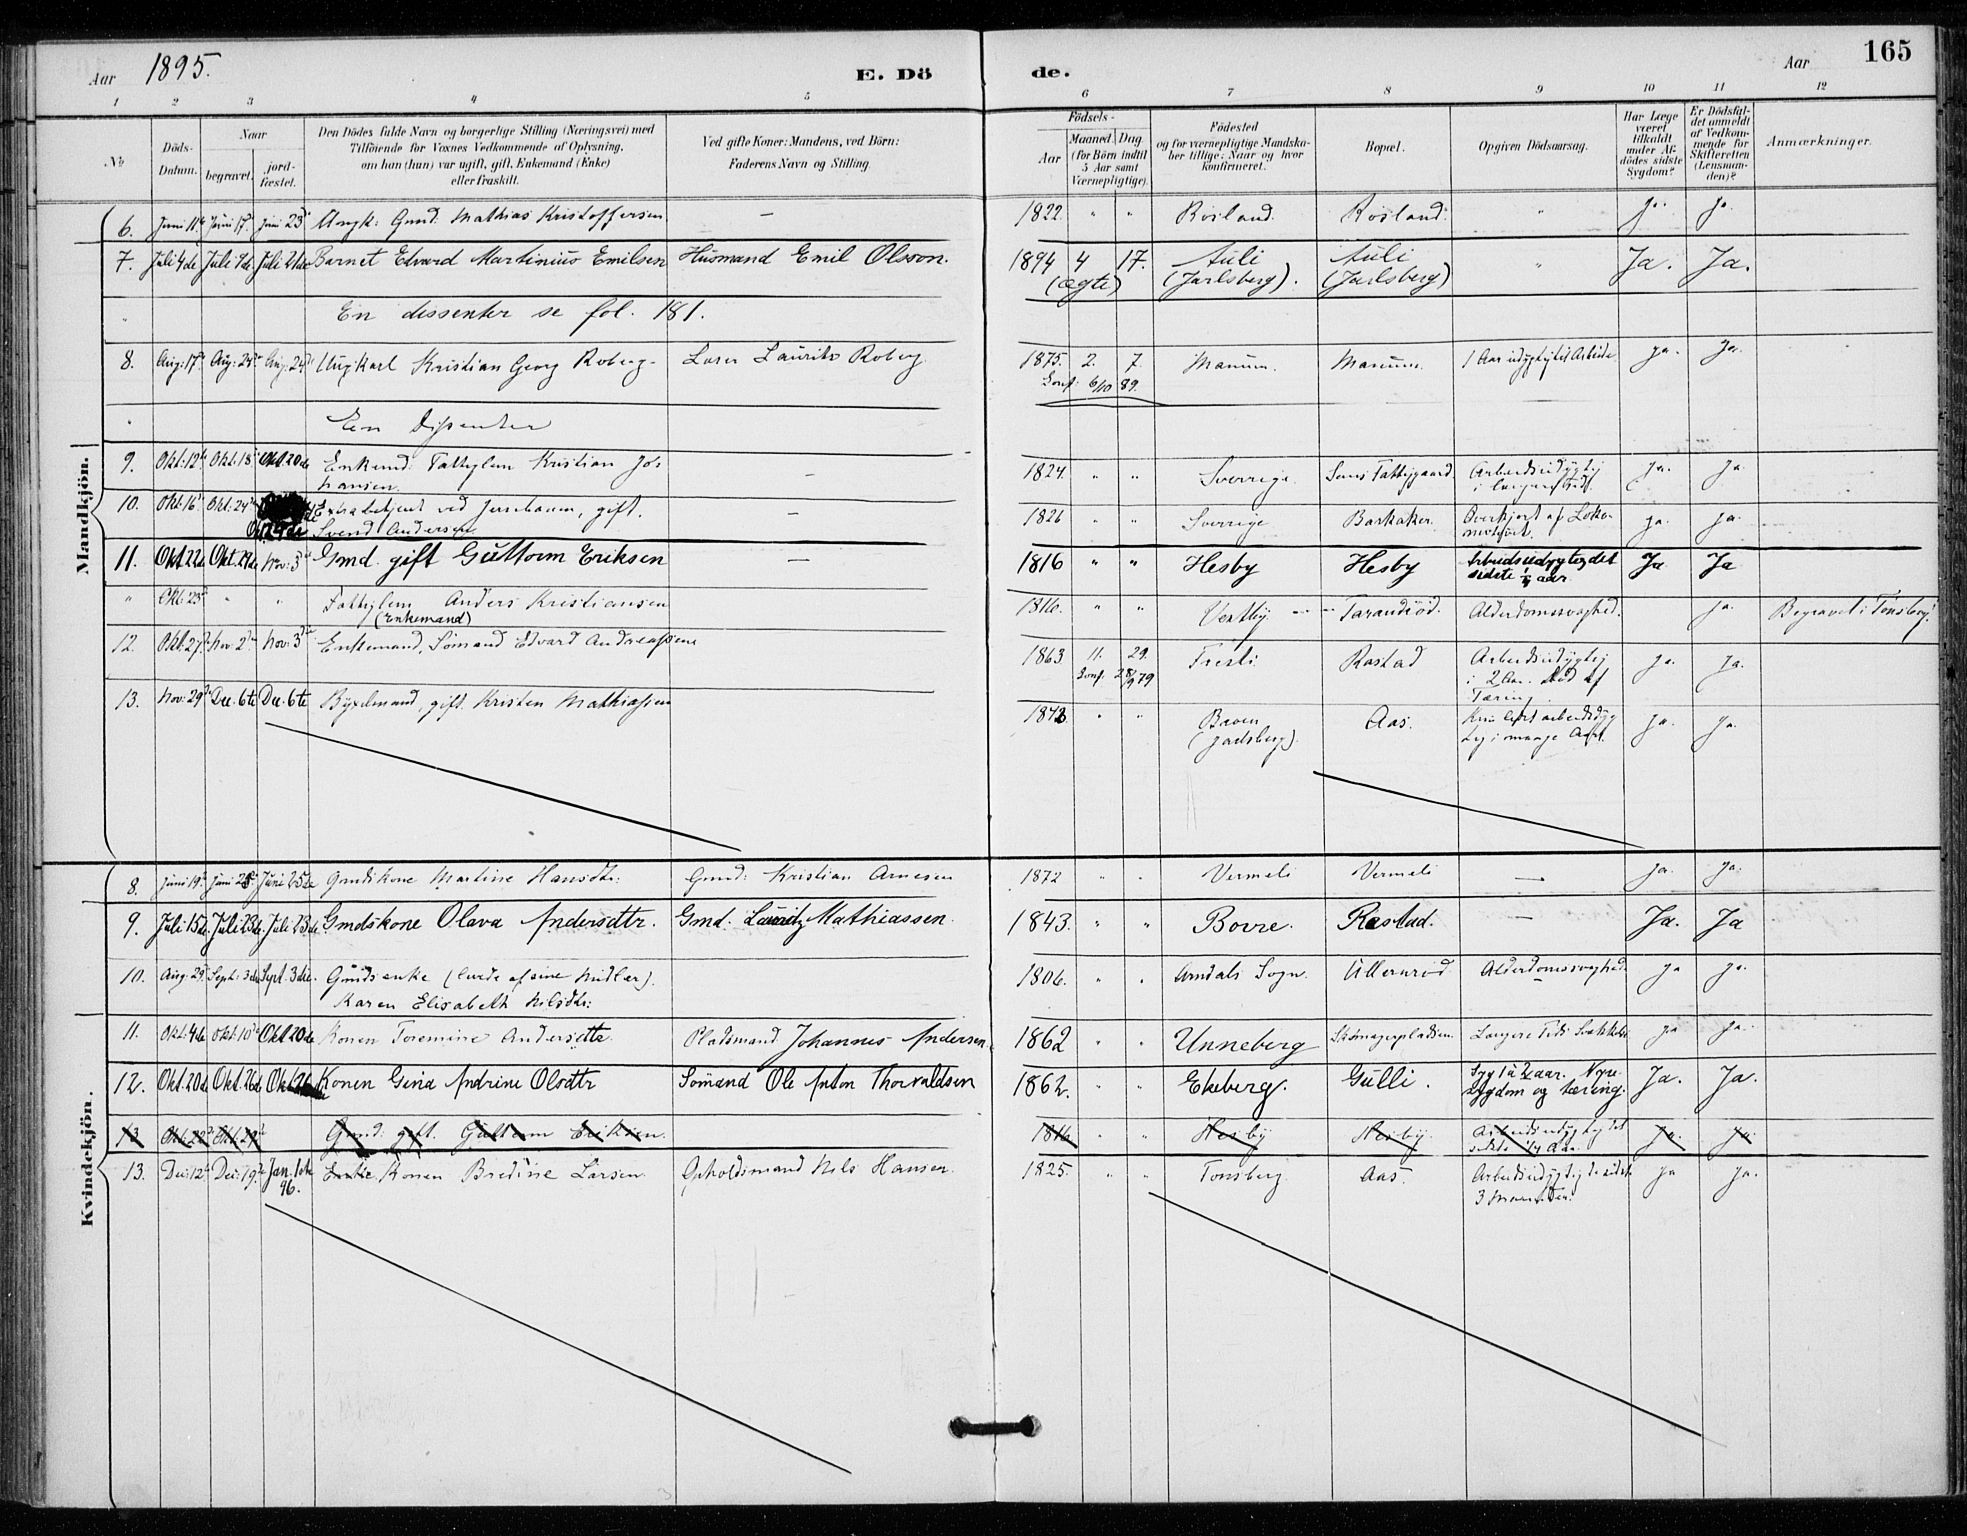 Aar 1895. E. Dö de. Aar 165
1 2 3 4 5 6 7 8 9 10 11 12
No
Döds-Datum.
Naar
begravet.
jordfæstet.
Den Dödes fulde Navn og borgerlige Stilling (Næringsvei) med
Tilföiende for Voxnes Vedkommende af Oplysning,
om han (hun) var ugift, gift, Enkemand (Enke)
eller fraskilt.
Ved gifte Koner: Mandens, ved Börn:
Faderens Navn og Stilling.
Födsels-
Aar
Maaned. Dag.
(for Börn indtil
5 Aar samt
Værnepligtige).
Födested
og for værnepligtige Mandskaber tillige: Naar og hvor
konfirmeret.
Bopæl.
Opgiven Dödsaarsag.
Har Læge
været
tilkaldt
under Afdödes sidste
Sygdom?
Er Dödsfaldet anmeldt
af Vedkommende for
Skifteretten
(Lensmanden)?
Anmærkninger.
Mandkjön.
6. Juni 11te Juni 17de Juni 23de Ungk: Gmd: Mathias Kristoffersen — 1822 " " Rösland. Rösland. " ja ja.
7. Juli 4de Juli 7de Juli 21de Barnet Edvard Martinius Emilsen Husmand Emil Olsson. 1894 4 17. Auli Auli " Ja. Ja.
(ægte) (Jarlsberg). (Jarlsberg)
" En dissenter se fol. 181.
8. Aug: 17de Aug: 24de Aug: 24de Ungkarl Kristian Georg Roberg Lauritz Roberg 1875. 2. 7. 1 Aar udygtig til Arbeide ja. ja.
Conf: 6/10 89.
" En Dissenter
9. Okt: 12te Okt: 18de Okt 20de Enkemd: Fattiglem Kristian Johansen. — 1824. " " Sverrige. Sems Fattiggaard Arbeidsudygtig ja. ja.
10. Okt: 16de Okt: 24de Okt 24de Extrabetjent ved Jernbanen, gift. — 1826 " " Sverrige Barkaker. Overkjørt af Lokomotivet. ja. ja.
Svend Andersen
11. Okt 22de Okt. 29de Nov: 3de Gmd. gift Guttorm Eriksen — 1816 " " Hesby Hesby Arbeidsudygtig det Ja Ja
sidste ¼ aar
" Okt: 23de " " Fattiglem Anders Kristiansen 1816. " " Vestby Tarandröd. Alderdomssvaghed. ja. Begravet i Tönsberg.
(Enkemand)
12. Okt: 27de Nov: 2den Nov: 3de Enkemand, Sömand Edvard Andreassen 1863 11. 29. Tresli Rastad Arbeidsudygtig ja. ja.
Conf. 28/9 79 i 2 Aar. Död af
Tæring
13. Nov: 29de Dec. 6te Dec. 6te Byxelmand, gift. Kristen Mathiassen 1843 " " Aas. ja. ja.
(Jarlsberg).
Kvindekjön.
8. Juni 19de Juni 25de Juni 25de Gmdskone Martine Hansdtr: Gmd: Kristian Arnesen 1872 " " Vermeli Vermeli — ja. ja.
9. Juli 15de Juli 23de Juli 23de Gmdskone Olava Andersdtr. Gmd. Lauritz Mathiassen. 1843. " " Borre. Rastad. — Ja. Ja
10. Aug: 29de Sept: 3die Sept. 3die. Gmdsenke (levede af sine Midler). 1806. " " Arndals Sogn. Ullernröd. Alderdomssvaghed. ja ja.
Karen Elisabeth Nilsdtr:
11. Okt: 4de Okt: 10de Okt 20de Konen Toremine Andersdtr. Pladsmand Johannes Andersen. 1862 " " Unneberg Skomagerpladsen. Længere Tids Svækkelse ja ja.
12. Okt. 20de Okt. 26de Okt 26 Konen Gina Andrine Olsdtr Sömand Ole Anton Thorvaldsen 1862. " " Ekeberg. Gulli. Syg 1 à 2 aar. Nyre- Ja. Ja.
sygdom og tæring.
13 Okt: 22de Okt: 29de Gmd: gift. Guttorm Eriksen. 1816 " " Hesby Hesby. Arbeidsudygtig det ja. ja.
sidste ¼ Aar.
13. Dec: 12te Dec: 19de Jan. 1ste 96. Enke Konen Bredine Larsen Opholdsmand Nils Hansen. 1825. " " Tönsberg. Aas. Arbeidsudygtig de sidste ja ja.
3 Maaneder.